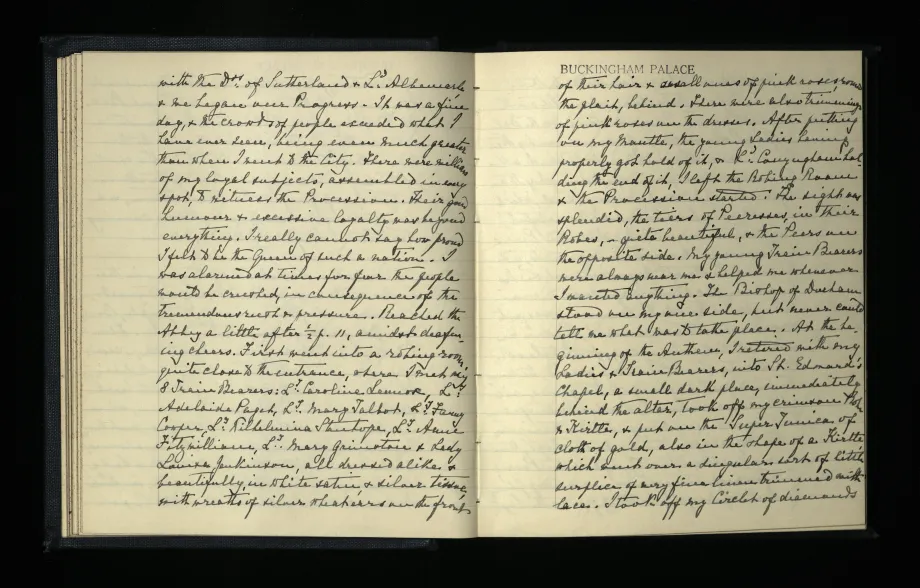 with the Dss. of Sutherland & Ld. Albemarle
& we began our Progress. - It was a fine
day, & the crowds of people exceeded what I
have ever seen, being even much greater
than when I went to the City. There were millions
of my loyal subjects, assembled in every
spot, to witness the Procession. Their good
humour & excessive loyalty was beyond
everything. I really cannot say how proud
I felt to be the Queen of such a nation. I
was alarmed at times for fear the people
would be crushed, in consequence of the
tremendous rush & pressure. Reached the
Abbey a little after ½ p. 11, amidst deafen-
ing cheers. First went into a robing room,
quite close to the entrance, where I met my
8 Train Bearers: Ly. Caroline Lennox, Ly.
Adelaide Paget, Ly. Mary Talbot, Ly. Fanny
Cowper, Ly. Wilhelmina Stanhope, Ly. Anne
Fitzwilliam, Ly. Mary Grimston & Lady
Louisa Jenkinson, all dressed alike &
beautifully, in white satin & silver tissue,
with wreaths of silver wheatears on the front
BUCKINGHAM PALACE
of their hair & small ones of pink roses round
the plait, behind. There were also trimmings
of pink roses on the dresses. After putting
on my Mantle, the young Ladies having
properly got hold of it, & Ld. Conyngham hol-
ding the end of it, I left the Robing Room
& the Procession started. The sight was
splendid, the tiers of Peeresses, in their
Robes, - quite beautiful, & the Peers on
the opposite side. My young Train Bearers
were always near me & helped me whenever
I wanted anything. The Bishop of Durham
stood on my side, but never could
tell me what was to take place. At the be-
ginning of the Anthem, I retired with my
Ladies & Train Bearers, into St. Edward's
Chapel, a small dark place, immediately
behind the altar, took off my crimson Robe
& Kirtle, & put on the Super Tunica of
cloth of gold, also in the shape of a Kirtle
which went over a singular sort of little
surplice of very fine linen trimmed with
lace. I took off my Circlet of diamonds